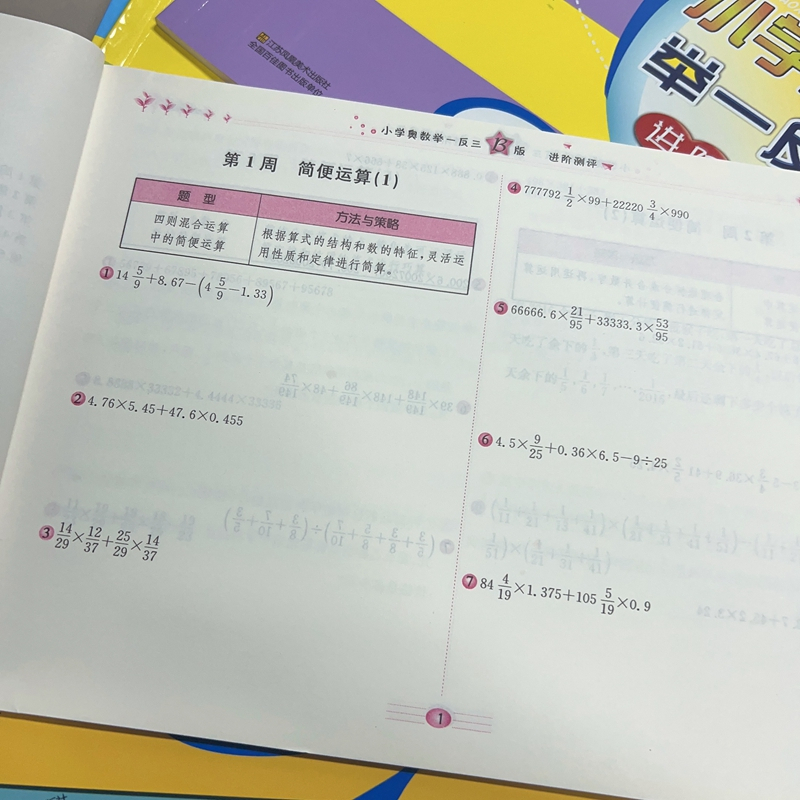 江苏凤凰美术出版社
全国百佳图书出版单位
小学
举一反
进阶
小学奥数举一反三 B版 进阶测评
第1周 简便运算(1)
题 型
方法与策略
四则混合运算
中的简便运算
根据算式的结构和数的特征,灵活运
用性质和定律进行简算。
1 14 5/9+8.67-(4 5/9-1.33)
2 4.76×5.45+47.6×0.455
3 14/29×12/37+25/29×14/37
4 777792 1/2×99+22220 3/4×990
5 66666.6×21/95+33333.3×53/95
6 4.5×9/25+0.36×6.5-9÷25
7 84 4/19×1.375+105 5/19×0.9
1